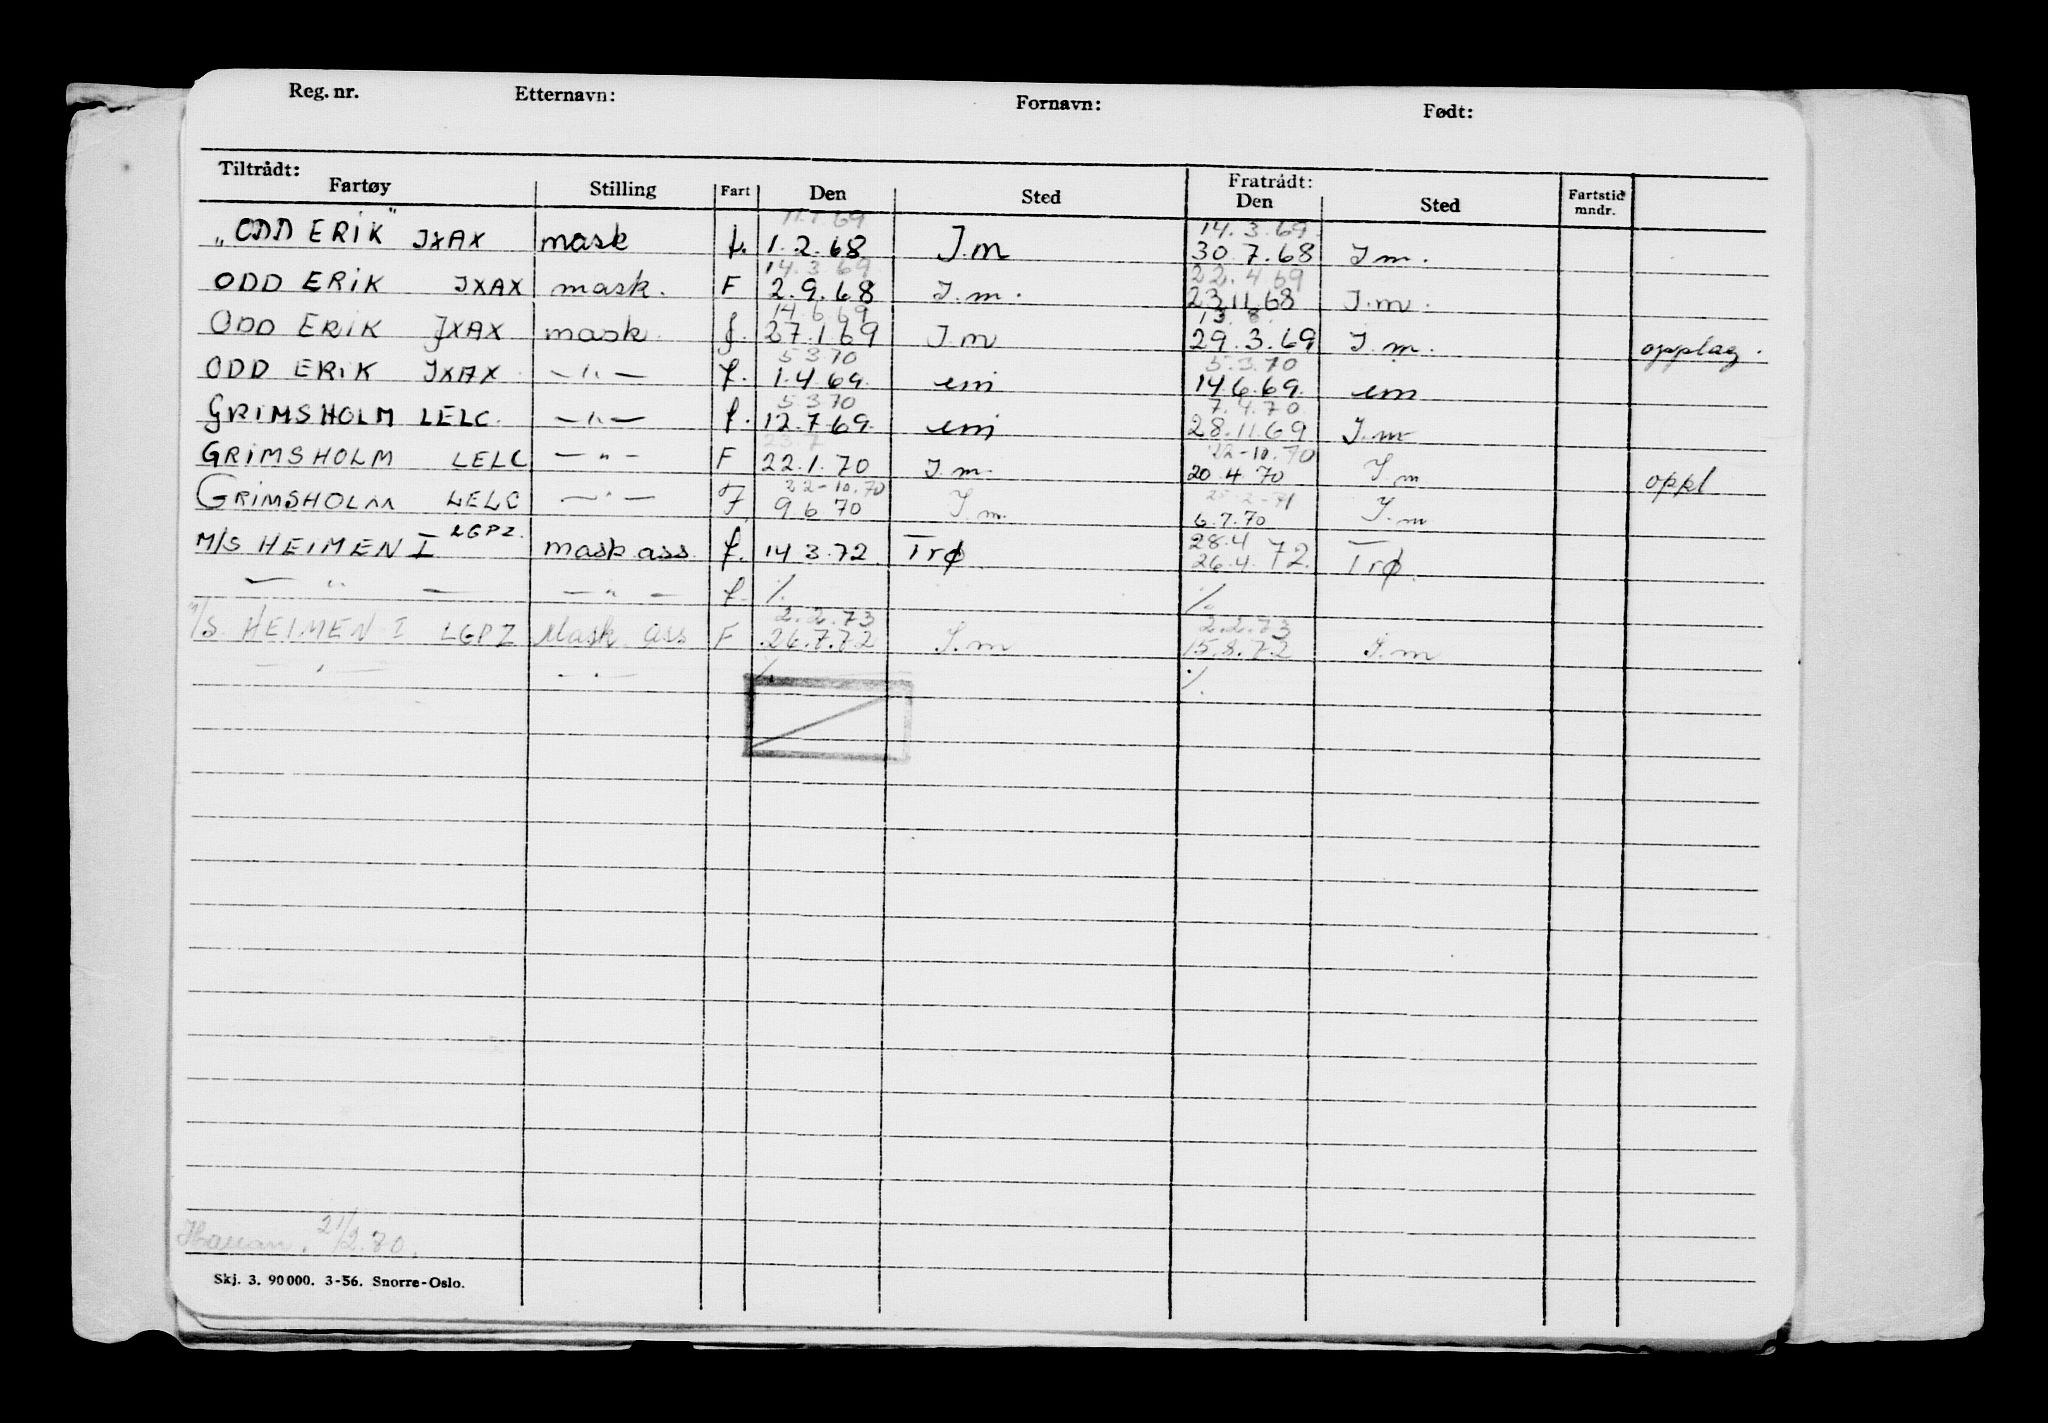 Reg. nr. Etternavn: Fornavn: Født:
Tiltrådt: Fratrådt:
Fartøy Stilling Fart Den Sted Den Sted Fartstid mndr.
11.1.69 14.3.69.
„ODD ERIK" JXAX mask f. 1.2.68 J.m 30.7.68 J m.
14.3.69 22.4.69
ODD ERIK JXAX mask. F 2.9.68 J.m. 23.11.68 J.m.
14.6.69 13.8.
ODD ERIK JXAX mask. f. 27.1.69 J m 29.3.69 J.m. opplag.
5 3 70 5.3.70
ODD ERIK JXAX. —"— f. 1.4.69. em 14.6.69. em
5 3 70 7.4.70.
GRIMSHOLM LELC. —"— f. 12.7.69. em 28.11.69 J.m
23.7 22-10.70
GRIMSHOLM LELC —"— F 22.1.70 J.m. 20.4.70 J m oppl
22-10.70
GRIMSHOLM LELC —"— F 9.6.70 J.m. 6.7.70 J.m
28.4
M/S HEIMEN I LGPZ. mask ass. f. 14.3.72. Trø 26.4.72. Trø.
—"— —"— f. ./. ./.
2.2.73 2.2.73
M/S HEIMEN I LGPZ Mask. ass F 26.7.72 J.m 15.8.72 J.m
—"— —"— ./. ./.
21/2.80.
Skj. 3. 90000. 3-56. Snorre-Oslo.